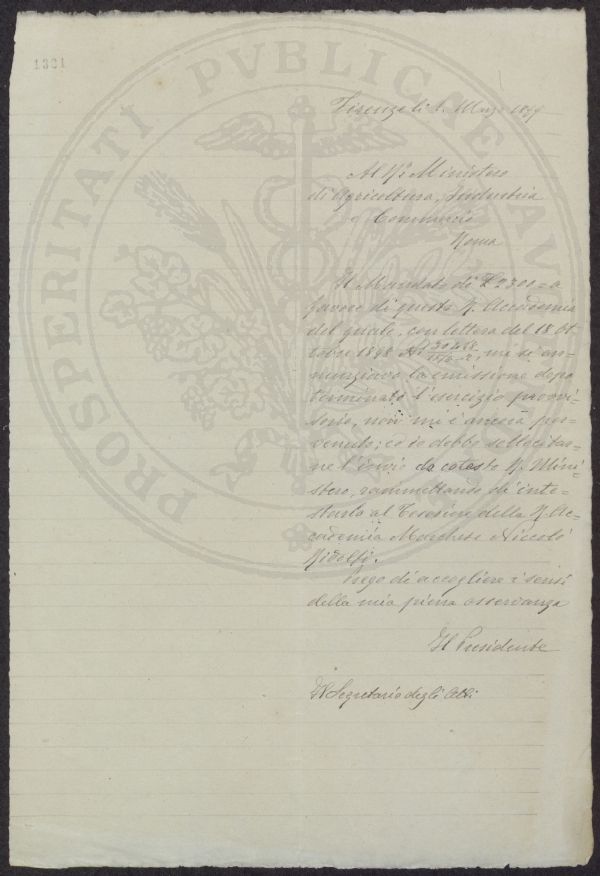 1321
PROSPERITATI PVBLICAE AVGENDAE
Firenze li 1. Marzo 1899
Al R.º Ministero
di Agricoltura, Industria
e Commercio
Roma
Il Mandato di £ 2300= a
favore di questa R. Accademia
del quale, con lettera del 18 Ot
tobre 1898 mi si an=
nunziava la emissione dopo
terminato l'esercizio provvi=
sorio, non mi è ancora per=
venuto; ed io debbo sollecitar=
ne l'invio da cotesto R. Mini=
stero, rammettando d'inte=
starlo al Tesoriere della R. Ac=
cademia Marchese Niccolò
Ridolfi.
Prego di accogliere i sensi
della mia piena osservanza
Il Presidente
Il Segretario degli Atti